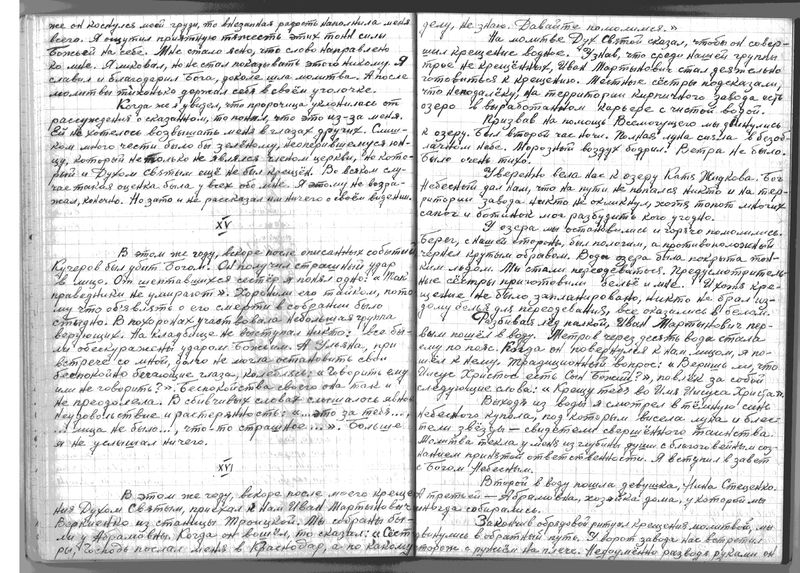 же он коснулся моей груди, то внезапная радость наполнила меня
всего. Я ощутил приятную тяжесть этих тонн силы
Божьей на себе. Мне стало ясно, что слово направлено
ко мне. Я ликовал, но не стал показывать этого никому. Я
славил и благодарил Бога, доколе шла молитва. А после
молитвы тихонько держал себя в своём уголочке.
Когда же я увидел, что пророчица уклонилась от
рассуждения о сказанном, то понял, что это из-за меня.
Ей не хотелось возвышать меня в глазах других. Слиш-
ком много чести было бы зелёному, неоперившемуся юн-
цу, который не только не являлся членом церкви, но кото-
рый и Духом Святым ещё не был крещён. Во всяком слу-
чае такая оценка была у всех обо мне. Я этому не возра-
жал, конечно. Но зато и не рассказал им ничего о своём видении.
XV
В этом же году, вскоре после описанных событий
Кучеров был убит Богом. Он получил страшный удар
в лицо. От шептавшихся сестёр я понял одно: «Так
праведники не умирают». Хоронили его тайком, пото-
му что объявлять о его смерти в собрании было
стыдно. В похоронах участвовала небольшая группа
верующих. На кладбище не выступал никто: все бы-
ли обескуражены ударом Божьим. А Ульяна, при
встрече со мной, долго не могла остановить свои
беспокойно бегающие глаза, колеблясь: «Говорить ему
или не говорить?». Беспокойства своего она так и
не преодолела. В сбивчивых словах слышалось явное
неудовольствие и растерянность: «...это за тебя...,
... лица не было..., что-то страшное...». Больше
я не услышал ничего.
XVI
В этом же году, вскоре после моего креще-
ния Духом Святым, приехал к нам Иван Мартынович
Вергиенко из станицы Троицкой. Мы собраны бы-
ли у Абрамовны. Когда он вошёл, то сказал: «Сёст-
ры, Господь послал меня в Краснодар, а по какому
делу, не знаю. Давайте помолимся.»
На молитве Дух Святой сказал, чтобы он совер-
шил крещение водное. Узнав, что среди нашей группы
трое не крещённых, Иван Мартынович стал деятельно
готовиться к крещению. Местные сёстры подсказали,
что неподалёку, на территории кирпичного завода есть
озеро в выработанном карьере с чистой водой.
Призвав на помощь Всемогущего мы двинулись
к озеру. Был второй час ночи. Полная луна сияла в безоб-
лачном небе. Морозный воздух бодрил. Ветра не было.
Было очень тихо.
Уверенно вела нас к озеру Катя Жидкова. Бог
Небесный дал нам, что на пути не попался никто и на тер-
ритории завода никто не окликнул, хотя топот многих
сапог и ботинок мог разбудить кого угодно.
У озера мы остановились и горячо помолились.
Берег, с нашей стороны, был пологим, а противоположный
чернел крутым обрывом. Вода озера была покрыта тон-
ким льдом. Мы стали переодеваться. Предусмотритель-
ные сёстры приготовили бельё и мне. И хотя кре-
щение не было запланировано, никто не брал из-
дому белья для переодевания, все оказались в белом.
Разбивая лёд палкой, Иван Мартынович пер-
вым пошёл в воду. Метров через десять вода стала
ему по пояс. Когда он повернулся к нам лицом, я по-
шёл к нему. Традиционный вопрос: «Веришь ли, что
Иисус Христос есть Сын Божий?», повлёк за собой
следующие слова: «Крещу тебя во Имя Иисуса Христа».
Выходя из воды я смотрел в тёмную синь
небесного купола, под которым висела луна и блес-
тели звёзды — свидетели свершённого таинства.
Молитва текла у меня из глубины души с благоговейным соз-
нанием принятой ответственности. Я вступил в завет
с Богом Небесным.
Второй в воду пошла девушка, Нина Стеценко.
А третьей — Абрамовна, хозяйка дома, у которой мы
иногда собирались.
Закончив обрядовый ритуал крещения молитвой, мы
двинулись в обратный путь. У ворот завода нас встретил
сторож с ружьём на плече. Недоуменно разводя руками он